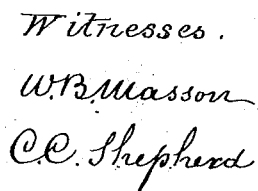 Witnesses.
W.B. Masson
C.C. Shepherd